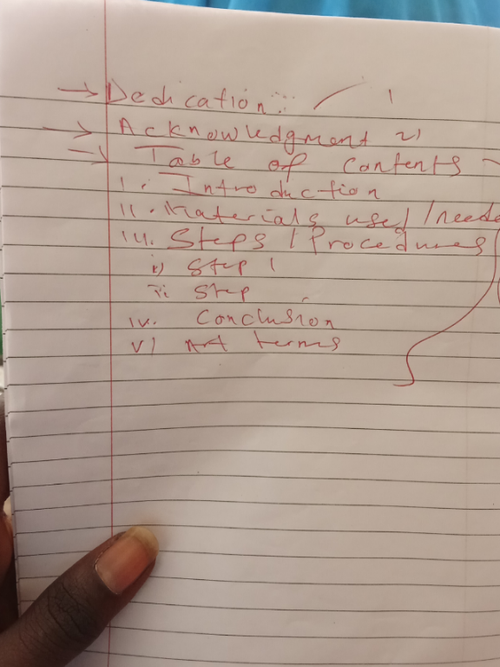 → Dedication 1
→ Acknowledgment 2)
→ Table of contents
i. Introduction
ii. Materials used /neede
iii. Steps / Procedures
i) Step 1
ii Step
iv. Conclusion
v) Art terms